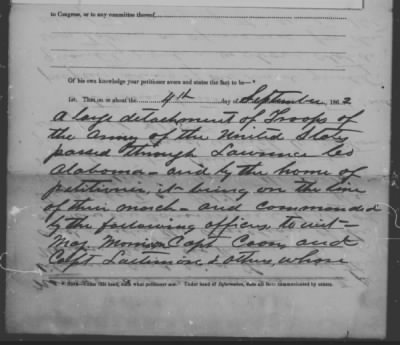 to Congress, or to any committee thereof,
Of his own knowledge your petitioner avers and states the fact to be—*
1st. That on or about the 4th day of September, 1862
A large detachment of Troops of
the Army of the United States
passed through Lawrence Co
Alabama – and by the home of
petitioner, it being on the line
of their march – and commanded
by the following officers to wit –
Maj. Capt and
Capt & others, whose
* NOTE.—Under this head, state what petitioner saw. Under head of Information, state all facts communicated by others.